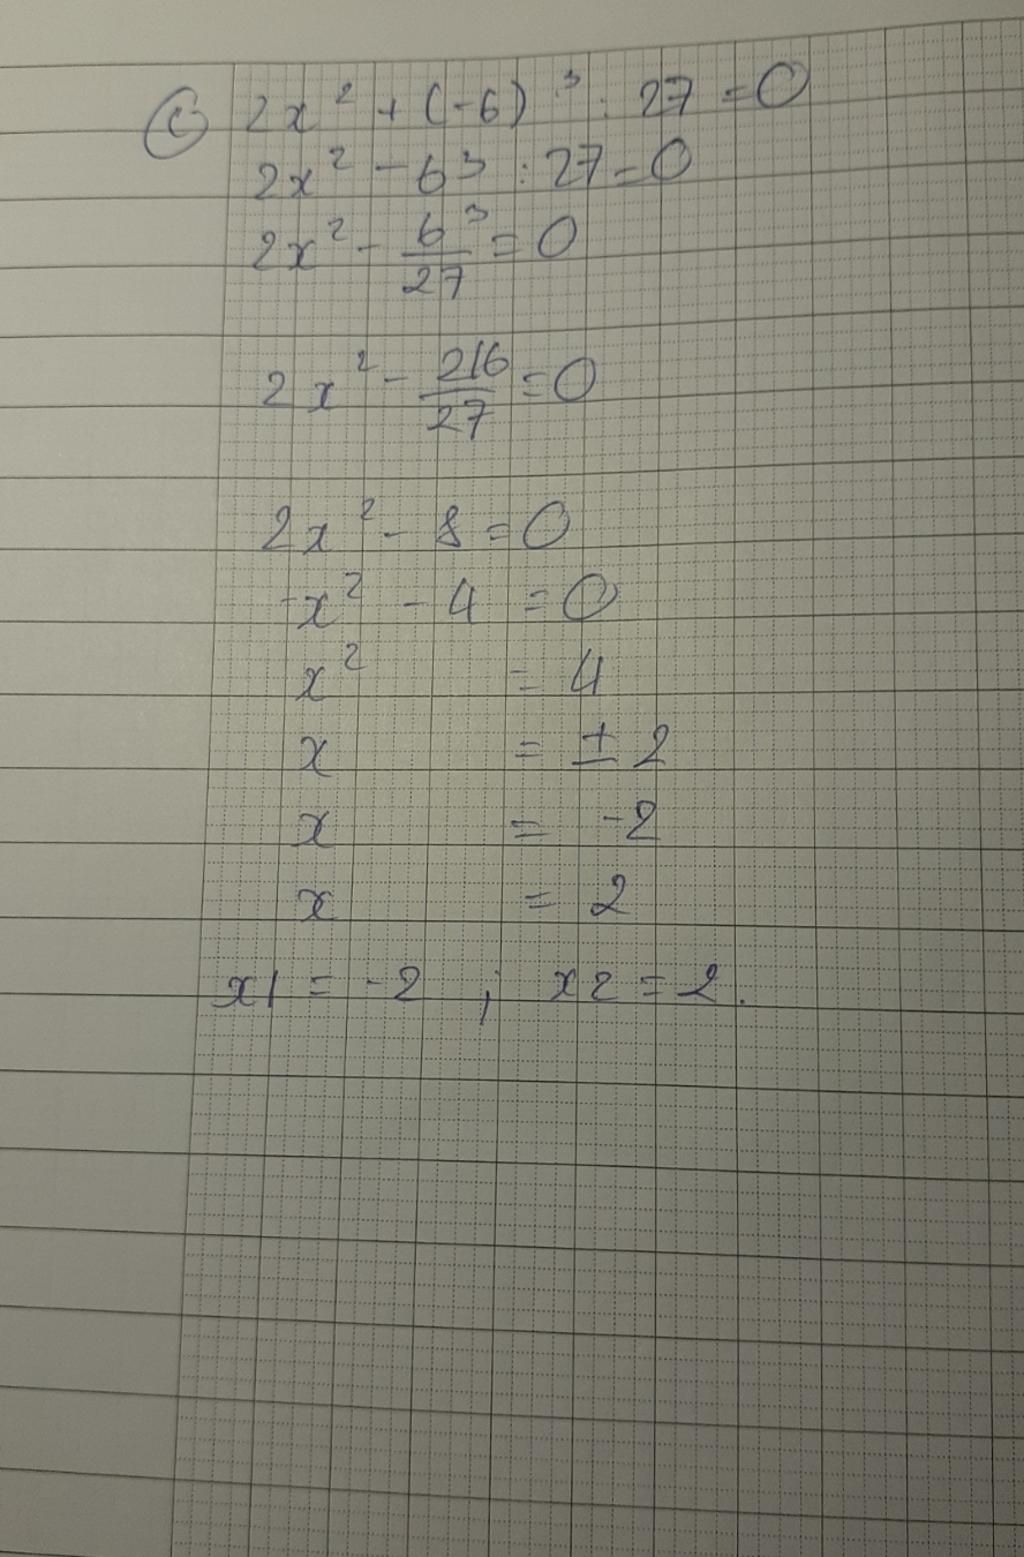 c) 2x² + (-6)³ : 27 = 0
2x² - 6³ : 27 = 0
2x² - 6³/27 = 0
2x² - 216/27 = 0
2x² - 8 = 0
-x² - 4 = 0
x² = 4
x = ± 2
x = -2
x = 2
x1 = -2 ; x2 = 2.